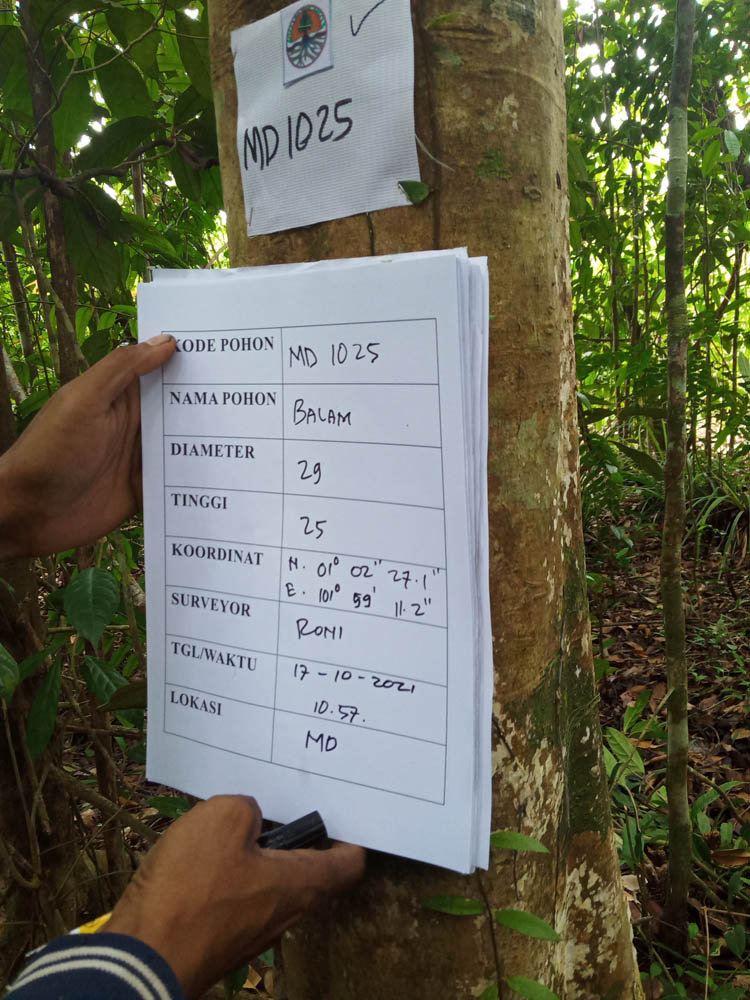 MD 1025
KODE POHON MD 1025
NAMA POHON BALAM
DIAMETER 29
TINGGI 25
KOORDINAT N. 01° 02" 27.1"
E. 101° 59' 11.2"
SURVEYOR RONI
TGL/WAKTU 17-10-2021
10.57.
LOKASI MD